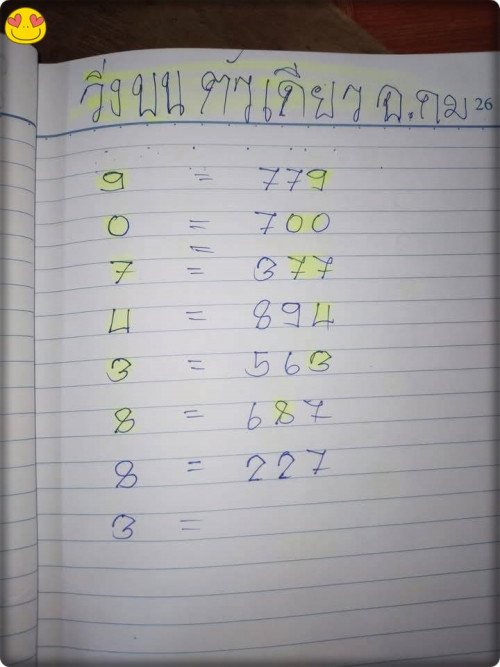 วิ่งบน ตัวเดียว อ.กม 26
9 = 779
0 = 700
=
7 = 377
4 = 894
3 = 563
8 = 687
8 = 227
3 =